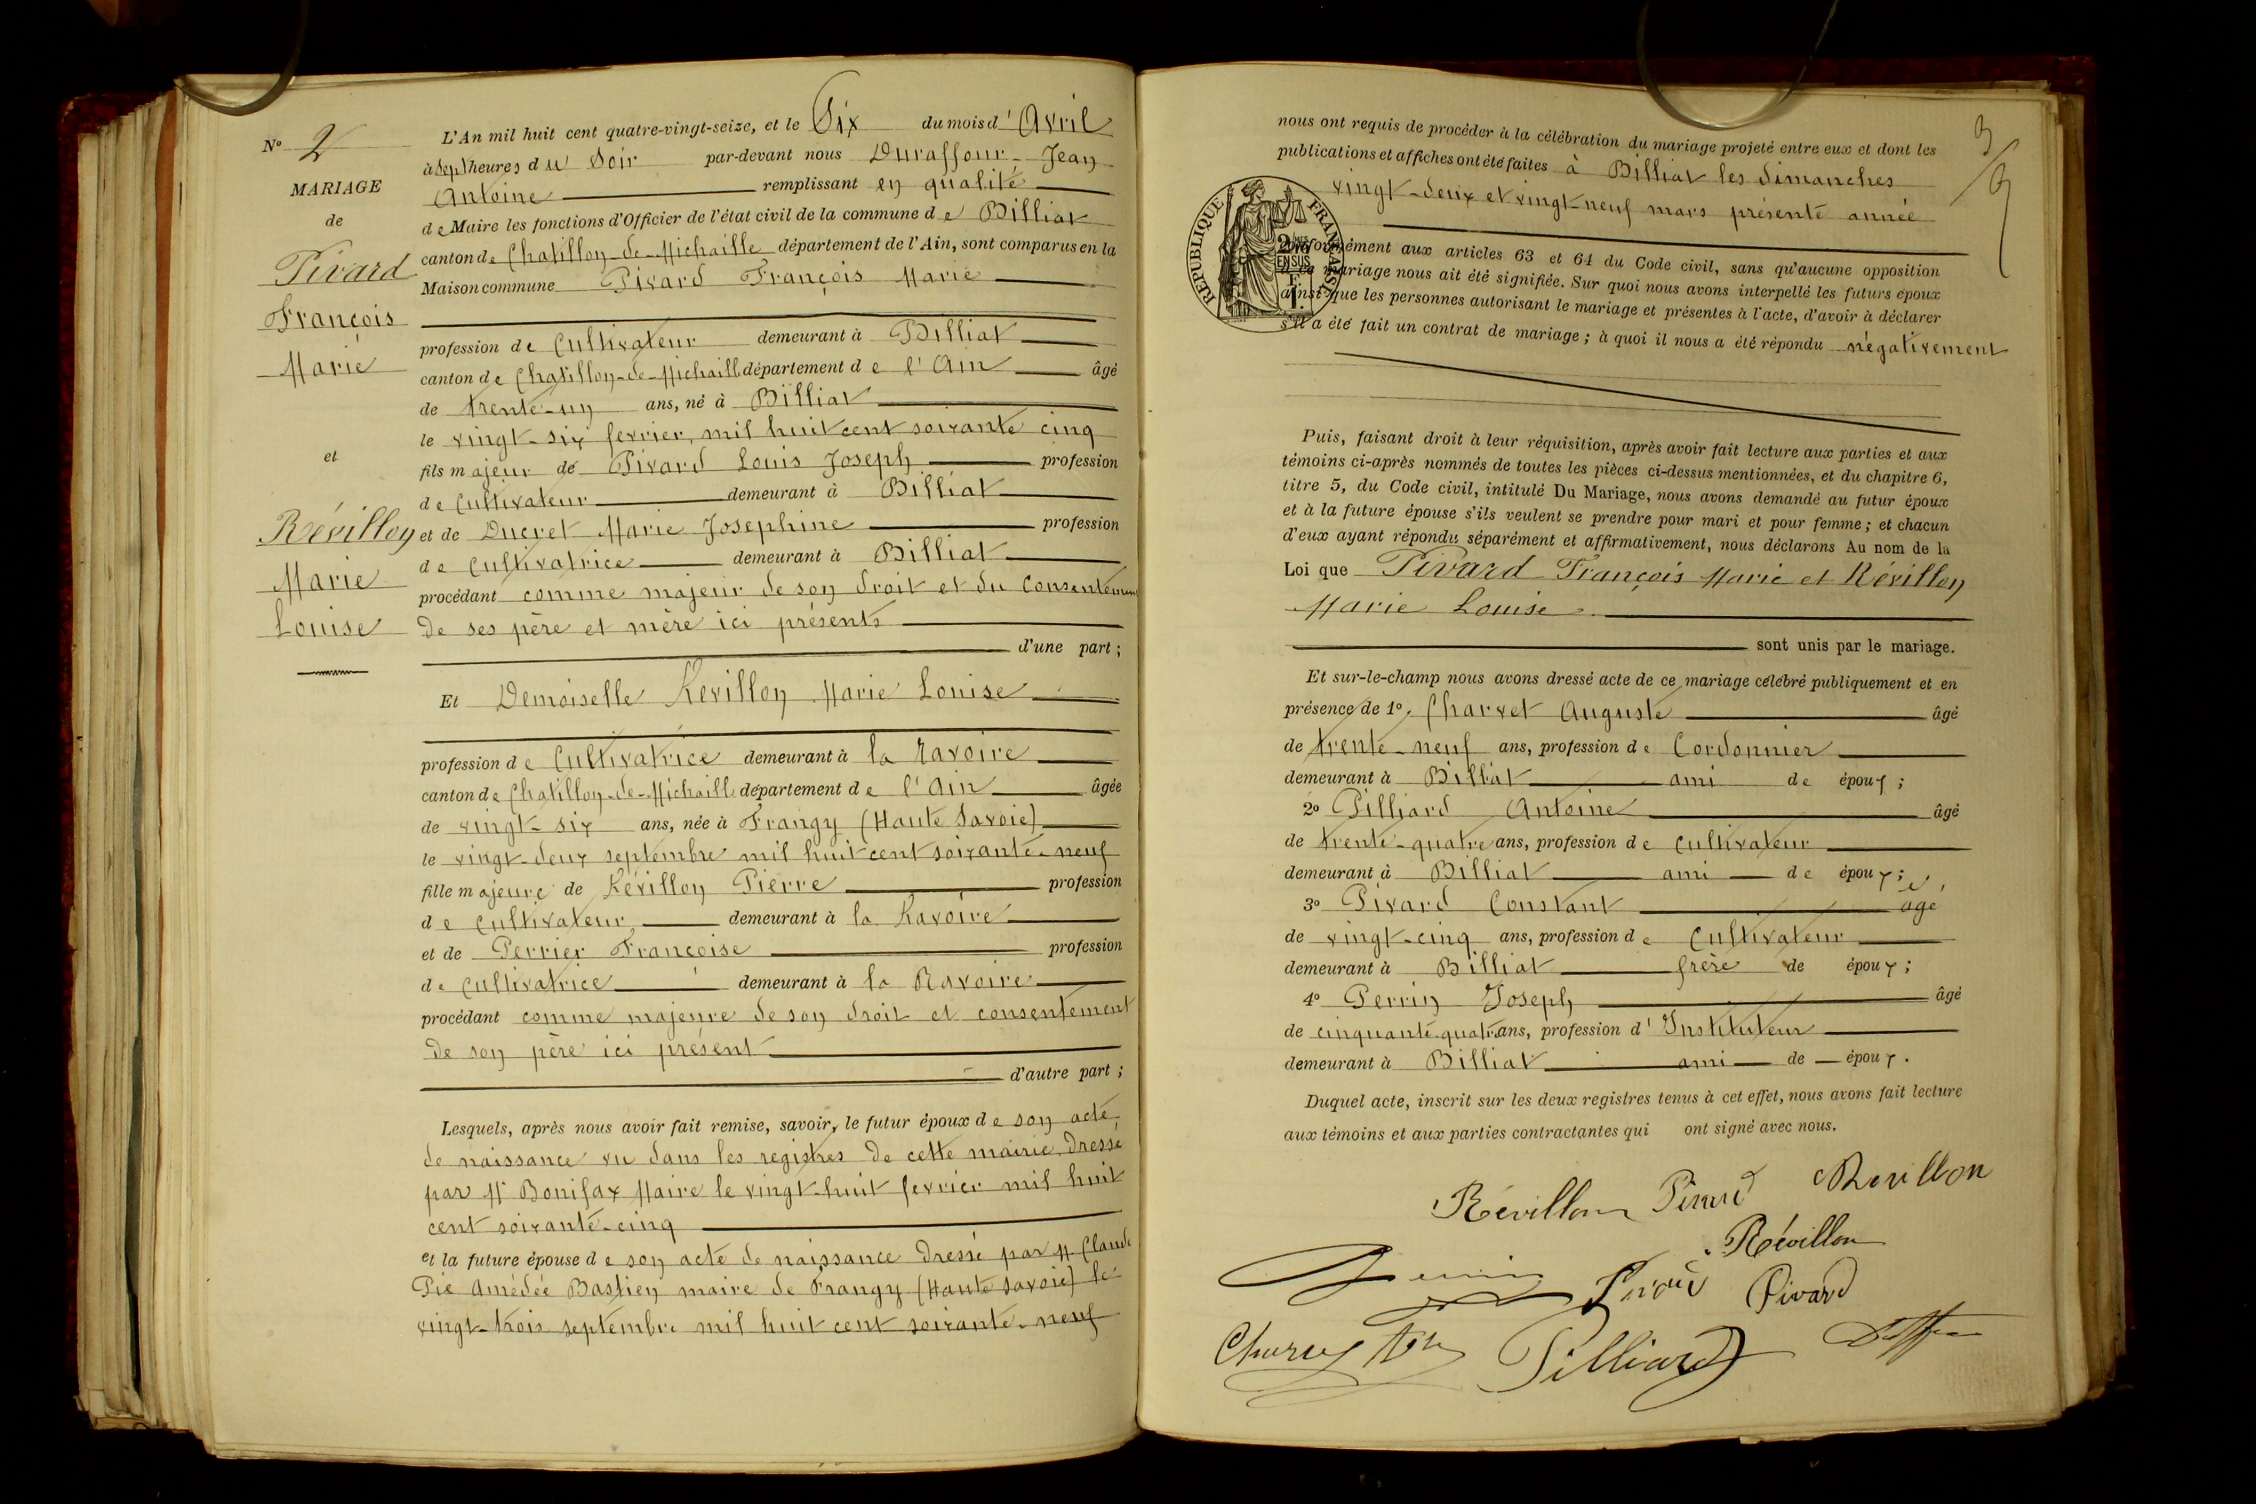 N° 2
MARIAGE
de
Pivard
François
Marie
et
Révillon
Marie
Louise
L'An mil huit cent quatre-vingt-seize, et le Six du mois d'Avril
à sept heures du Soir par-devant nous Duraffour Jean
Antoine remplissant en qualité
de Maire les fonctions d'Officier de l'état civil de la commune de Billiat
canton de Chatillon-de-Michaille département de l'Ain, sont comparus en la
Maison commune Pivard François Marie
profession de Cultivateur demeurant à Billiat
canton de Chatillon-de-Michaill département de l'Ain âgé
de trente-un ans, né à Billiat
le vingt-six fevrier mil huit cent soixante cinq
fils majeur de Pivard Louis Joseph profession
de Cultivateur demeurant à Billiat
et de Ducret Marie Josephine profession
de Cultivatrice demeurant à Billiat
procédant comme majeur de son droit et du Consentement
de ses père et mère ici présents
d'une part ;
Et Demoiselle Revillon Marie Louise
profession de Cultivatrice demeurant à la Ravoire
canton de Chatillon-de-Michaill département de l'Ain âgée
de vingt-six ans, née à Frangy (Haute Savoie)
le vingt-deux septembre mil huit cent soixante-neuf
fille majeure de Révillon Pierre profession
de Cultivateur demeurant à la Ravoire
et de Perrier Francoise profession
de Cultivatrice demeurant à la Ravoire
procédant comme majeure de son droit et consentement
de son père ici présent
d'autre part ;
Lesquels, après nous avoir fait remise, savoir, le futur époux de son acte
de naissance vu dans les registres de cette mairie dressé
par Mr Bonifax Maire le vingt-huit fevrier mil huit
cent soixante-cinq
et la future épouse de son acte de naissance dressé par M. Claude
Pie Amédée Bastien maire de Frangy (Haute Savoie) le
vingt-trois septembre mil huit cent soixante-neuf
nous ont requis de procéder à la célébration du mariage projeté entre eux et dont les
publications et affiches ont été faites à Billiat les dimanches
vingt-deux et vingt-neuf mars présente année
RÉPUBLIQUE FRANÇAISE
conformément aux articles 63 et 64 du Code civil, sans qu'aucune opposition
à ce mariage nous ait été signifiée. Sur quoi nous avons interpellé les futurs époux
ainsi que les personnes autorisant le mariage et présentes à l'acte, d'avoir à déclarer
s'il a été fait un contrat de mariage ; à quoi il nous a été répondu négativement
Puis, faisant droit à leur réquisition, après avoir fait lecture aux parties et aux
témoins ci-après nommés de toutes les pièces ci-dessus mentionnées, et du chapitre 6,
titre 5, du Code civil, intitulé Du Mariage, nous avons demandé au futur époux
et à la future épouse s'ils veulent se prendre pour mari et pour femme ; et chacun
d'eux ayant répondu séparément et affirmativement, nous déclarons Au nom de la
Loi que Pivard François Marie et Révillon
Marie Louise
sont unis par le mariage.
Et sur-le-champ nous avons dressé acte de ce mariage célébré publiquement et en
présence de 1° Charvet Auguste âgé
de trente-neuf ans, profession de Cordonnier
demeurant à Billiat ami de époux ;
2° Pilliard Antoine âgé
de trente-quatre ans, profession de Cultivateur
demeurant à Billiat ami de époux ;
3° Pivard Constant âgé
de vingt-cinq ans, profession de Cultivateur
demeurant à Billiat frère de époux ;
4° Perrin Joseph âgé
de cinquante-quatre ans, profession d'Instituteur
demeurant à Billiat ami de époux.
Duquel acte, inscrit sur les deux registres tenus à cet effet, nous avons fait lecture
aux témoins et aux parties contractantes qui ont signé avec nous.
Révillon Pivard Revillon
Révillon
Pivard
Pilliard